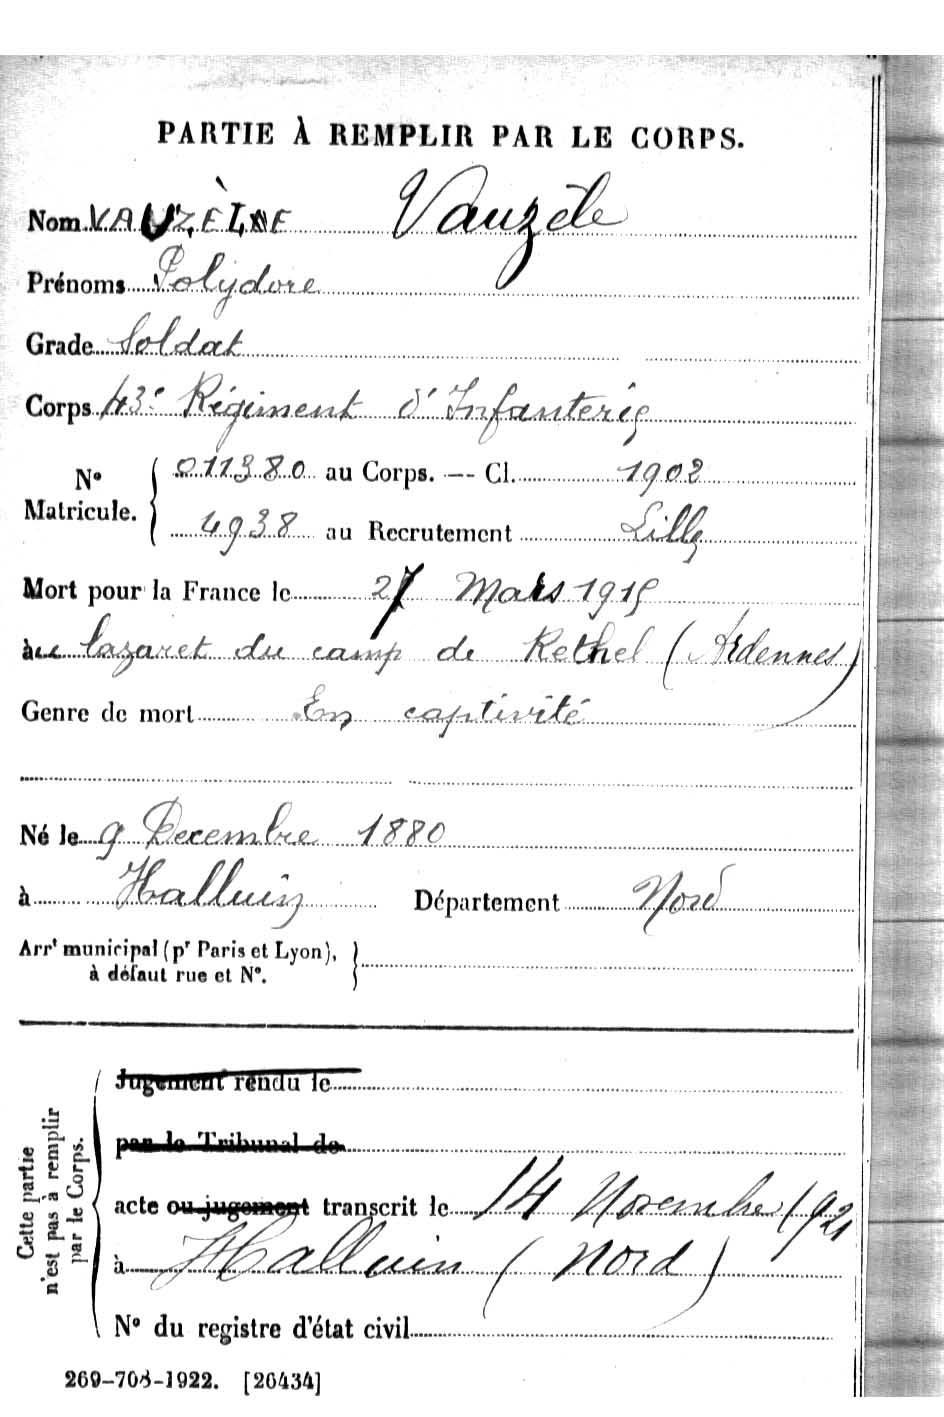 PARTIE À REMPLIR PAR LE CORPS.
Nom VAUZÈLE Vauzèle
Prénoms Polydore
Grade Soldat
Corps 43e Régiment d'Infanterie
No Matricule. 011380 au Corps. — Cl. 1902
4938 au Recrutement Lille
Mort pour la France le 27 Mars 1915
au lazaret du camp de Rethel (Ardennes)
Genre de mort En captivité
Né le 9 Decembre 1880
à Halluin Département Nord
Arrt municipal (pr Paris et Lyon),
à défaut rue et No.
Cette partie
n'est pas à remplir
par le Corps.
Jugement rendu le
par le Tribunal de
acte ou jugement transcrit le 14 Novembre 1921
à Halluin (Nord)
No du registre d'état civil
269-708-1922. [26434]